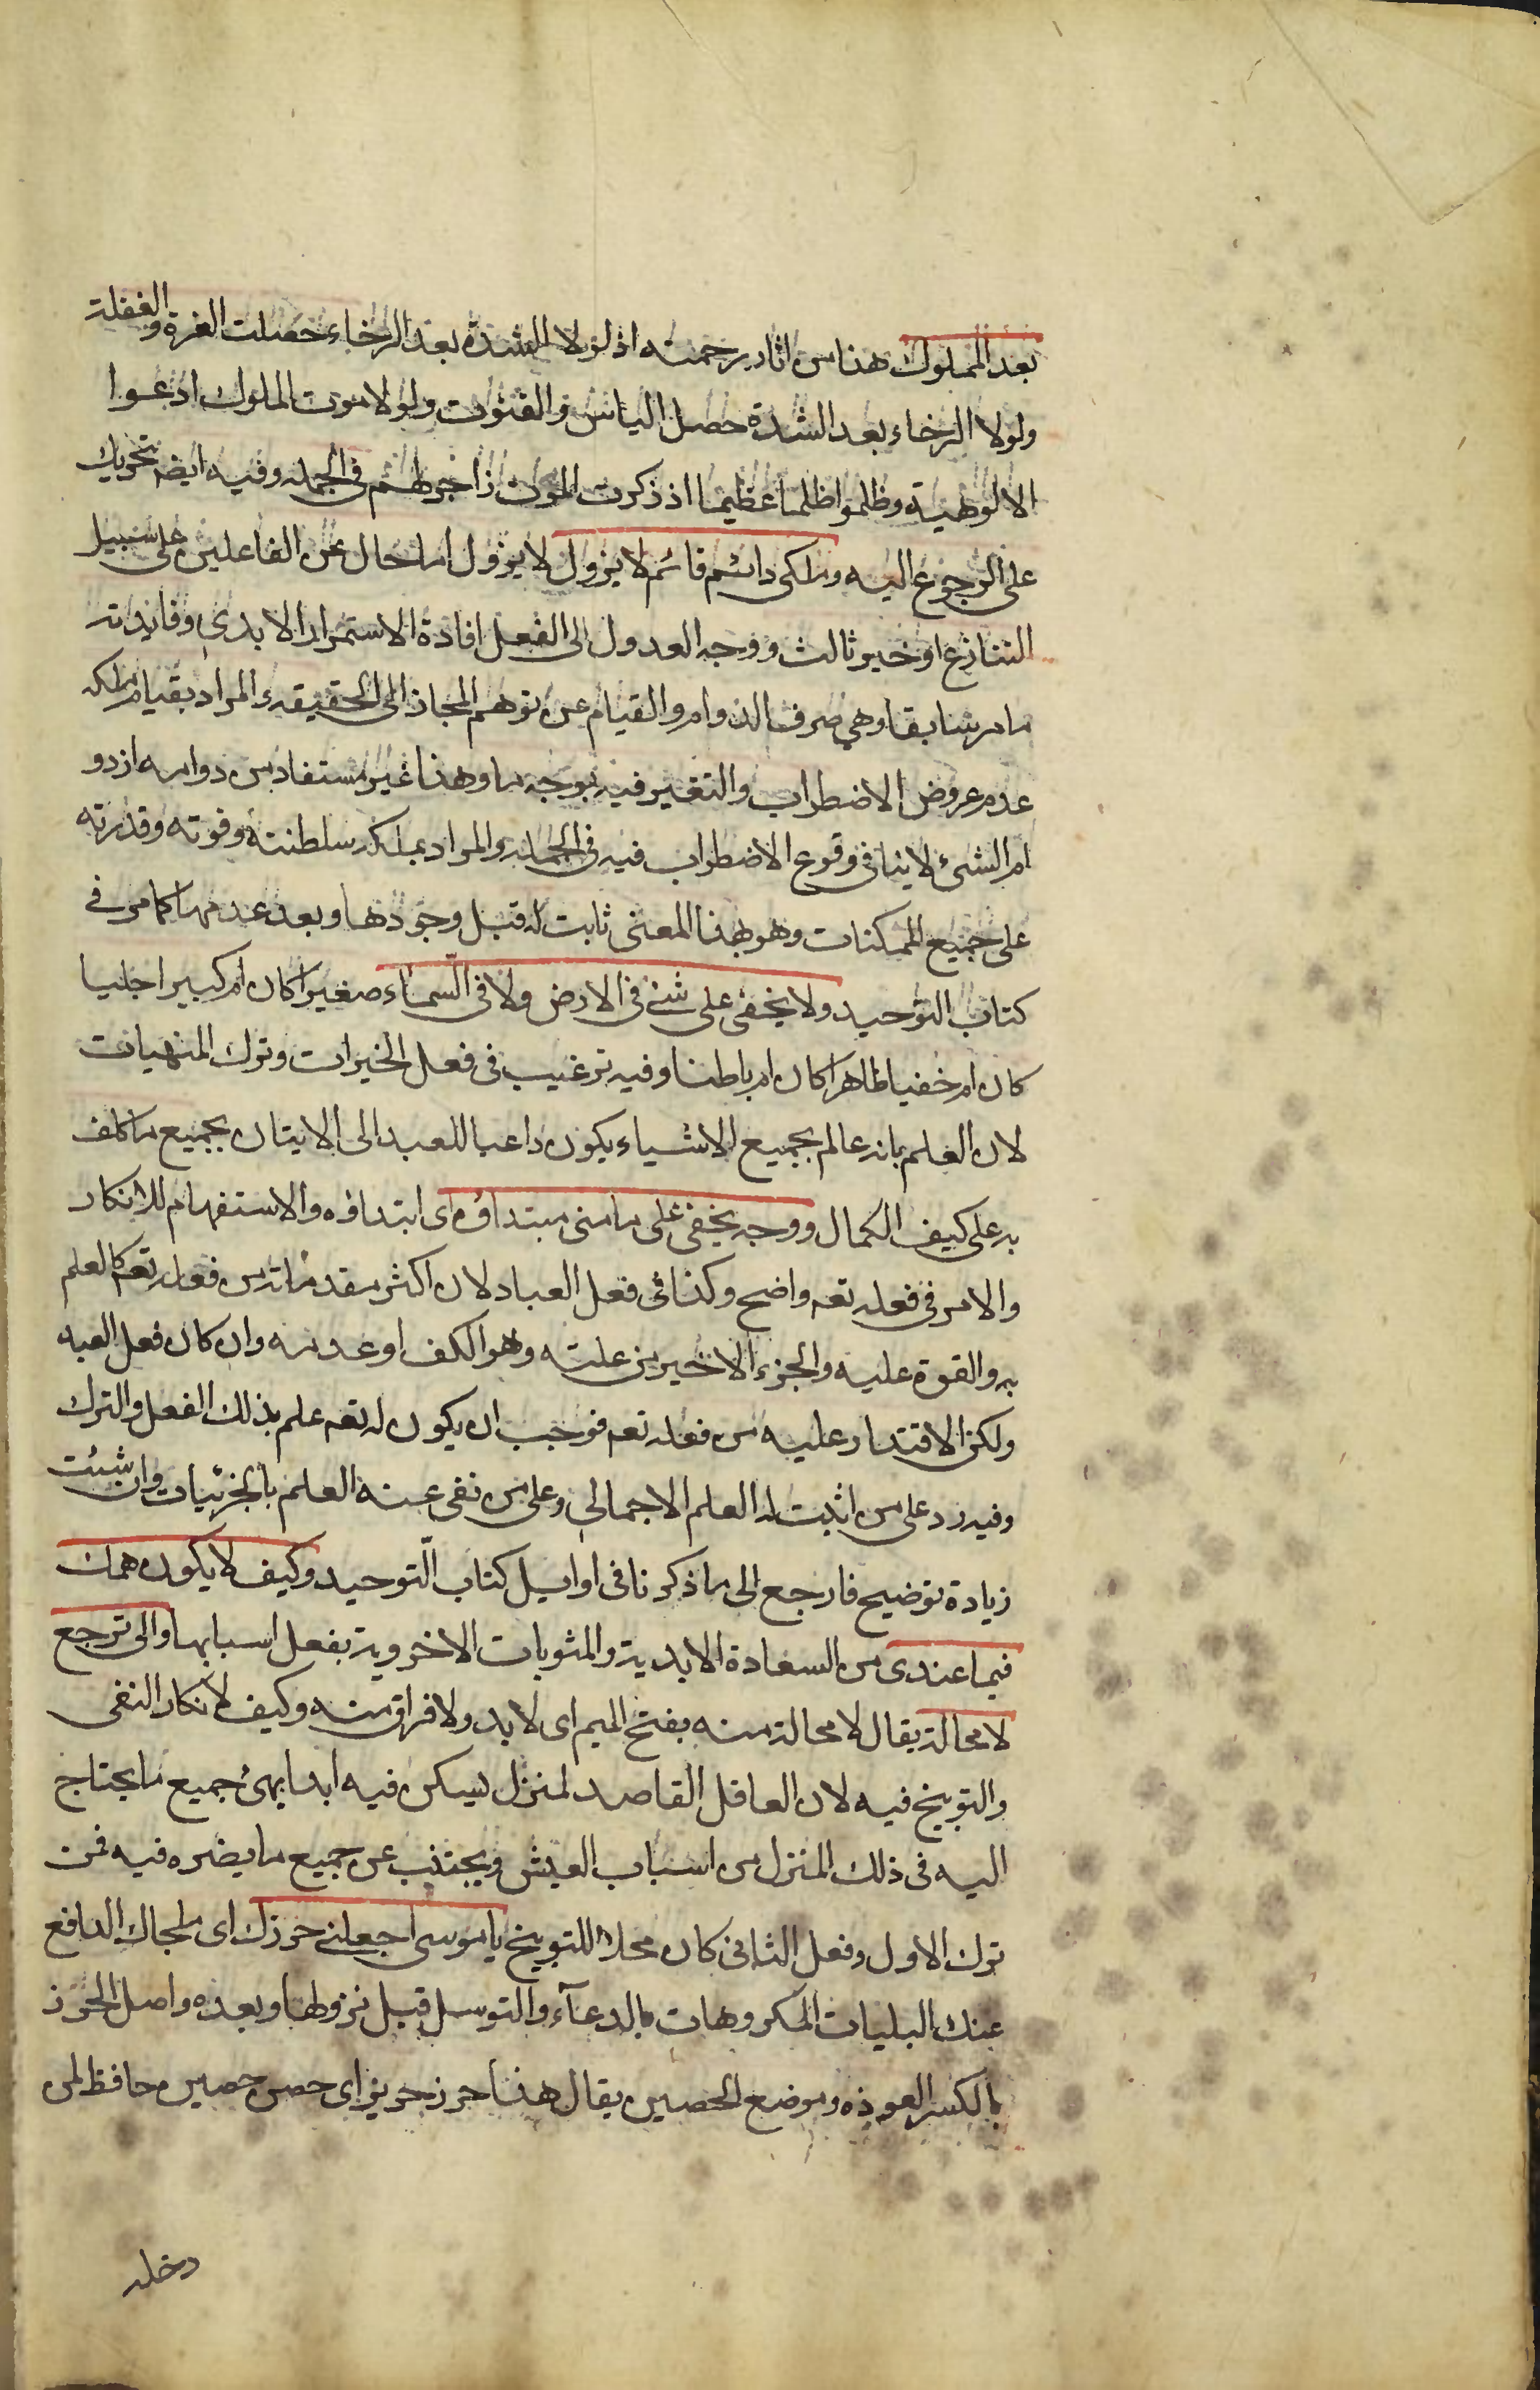 بعد الملوك هذا من اثار رحمته اذ لولا الشدة بعد الرخاء حصلت الغرة والغفلة
ولولا الرخاء بعد الشدة حصل الياس والقنوت ولولا موت الملوك ادعوا
الالوهية وظلموا ظلما عظيما اذ ذكرت الموت زاجر لهم في الجملة وفيه ايضم تحريك
على الرجوع اليه وملكى دائم قائم لا يزول لا يزول اما حال عن الفاعلين على سبيل
التنازع او خبر ثالث ووجه العدول الى الفعل افادة الاستمرار الابدي وفايدته
ما مر سابقا وهي صرف الدوام والقيام عن توهم المجاز الى الحقيقة والمراد بقيام ملكه
عدم عروض الاضطراب والتغير فيه بوجه ما وهذا غير مستفاد من دوامه اذ دو
ام الشئ لا ينافى وقوع الاضطراب فيه فى الجملة والمراد بملكه سلطنته وقوته وقدرته
على جميع الممكنات وهو بهذا المعنى ثابت له قبل وجودها وبعد عدمها كما مر في
كتاب التوحيد ولا يخفى على شئ فى الارض ولا فى السماء صغيرا كان ام كبيرا جليا
كان ام خفيا ظاهرا كان ام باطنا وفيه ترغيب فى فعل الخيرات وترك المنهيات
لان العلم بانه عالم بجميع الاشياء يكون داعيا للعبد الى الايتان بجميع ما كلف
به على كيف الكمال ووجه يخفى على ما منى مبتداؤه اى ابتداؤه والاستفهام للانكار
والامر فى فعله تعم واضح وكذا فى فعل العباد لان اكثر مقدماته من فعله تعم كالعلم
به والقوة عليه والجزء الاخير من علته وهو الكف او عدمه وان كان فعل العبد
ولكن الاقتدار عليه من فعله تعم فوجب ان يكون له تعم علم بذلك الفعل والترك
وفيه رد على من اثبت له العلم الاجمالى وعلى من نفى عنه العلم بالجزئيات وان شئت
زيادة توضيح فارجع الى ما ذكرنا فى اوايل كتاب التوحيد وكيف لا يكون همك
فيما عندى من السعادة الابدية والمثوبات الاخروية بفعل اسبابها والى ترجع
لا محالة يقال لا محالة منه بفتح الميم اى لا بد ولا فراق منه وكيف لانكار النفى
والتوبيخ فيه لان العاقل القاصد لمنزل يسكن فيه ابدا يهئ جميع ما يحتاج
اليه فى ذلك المنزل من اسباب العيش ويجتنب عن جميع ما يضره فيه فمن
ترك الاول وفعل الثانى كان محلا للتوبيخ يا موسى اجعلنى حرزك اى ملجاك الدافع
عنك البليات المكروهات بالدعاء والتوسل قبل نزولها وبعده واصل الحرز
بالكسر العوذه وموضع الحصين يقال هذا حرز حريز اى حصن حصين حافظ لمن
دخله